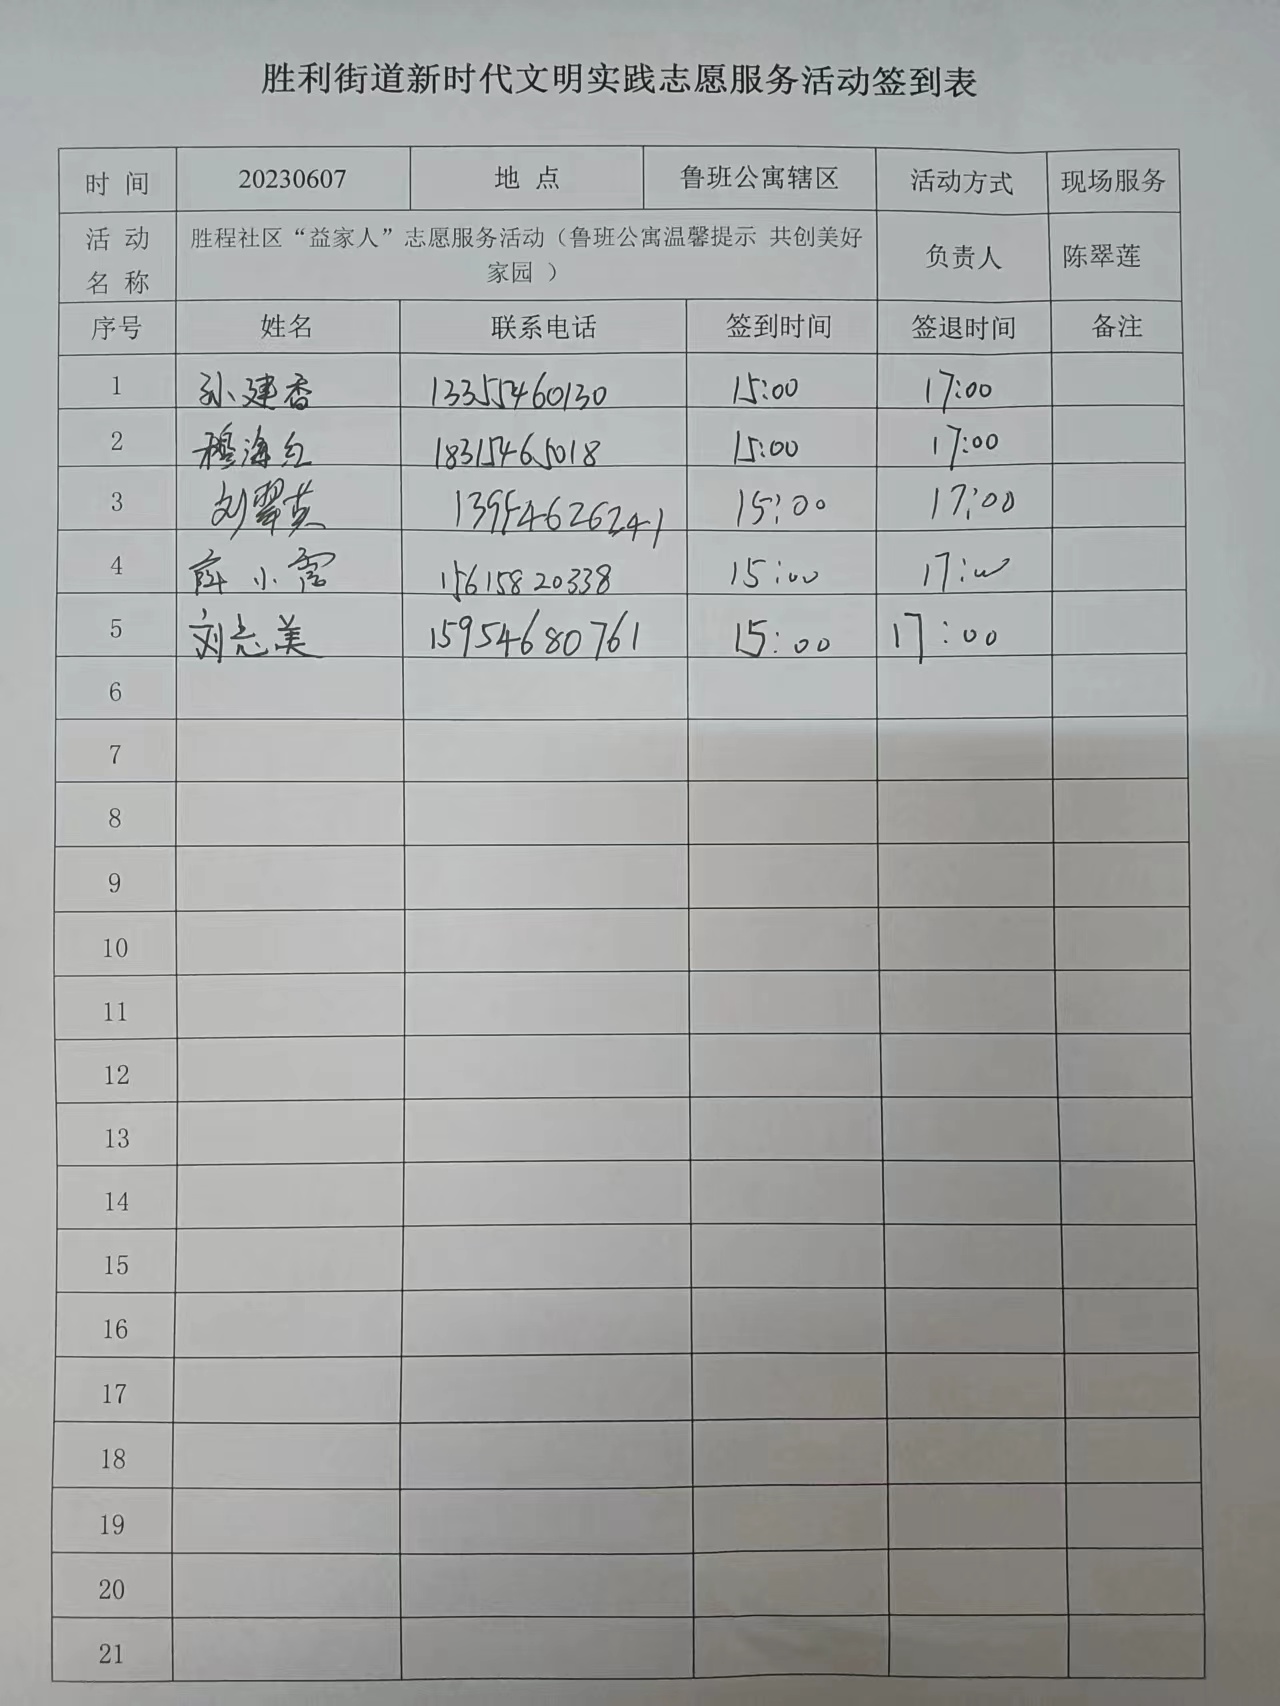 胜利街道新时代文明实践志愿服务活动签到表
时 间 20230607 地 点 鲁班公寓辖区 活动方式 现场服务
活 动 名 称 胜程社区“益家人”志愿服务活动（鲁班公寓温馨提示 共创美好 负责人 陈翠莲
家园 ）
序号 姓名 联系电话 签到时间 签退时间 备注
1 孙建香 13355460130 15:00 17:00
2 穆海红 18315465018 15:00 17:00
3 刘翠英 13954626241 15:00 17:00
4 薛小雷 15615820338 15:00 17:00
5 刘志美 15954680761 15:00 17:00
6
7
8
9
10
11
12
13
14
15
16
17
18
19
20
21